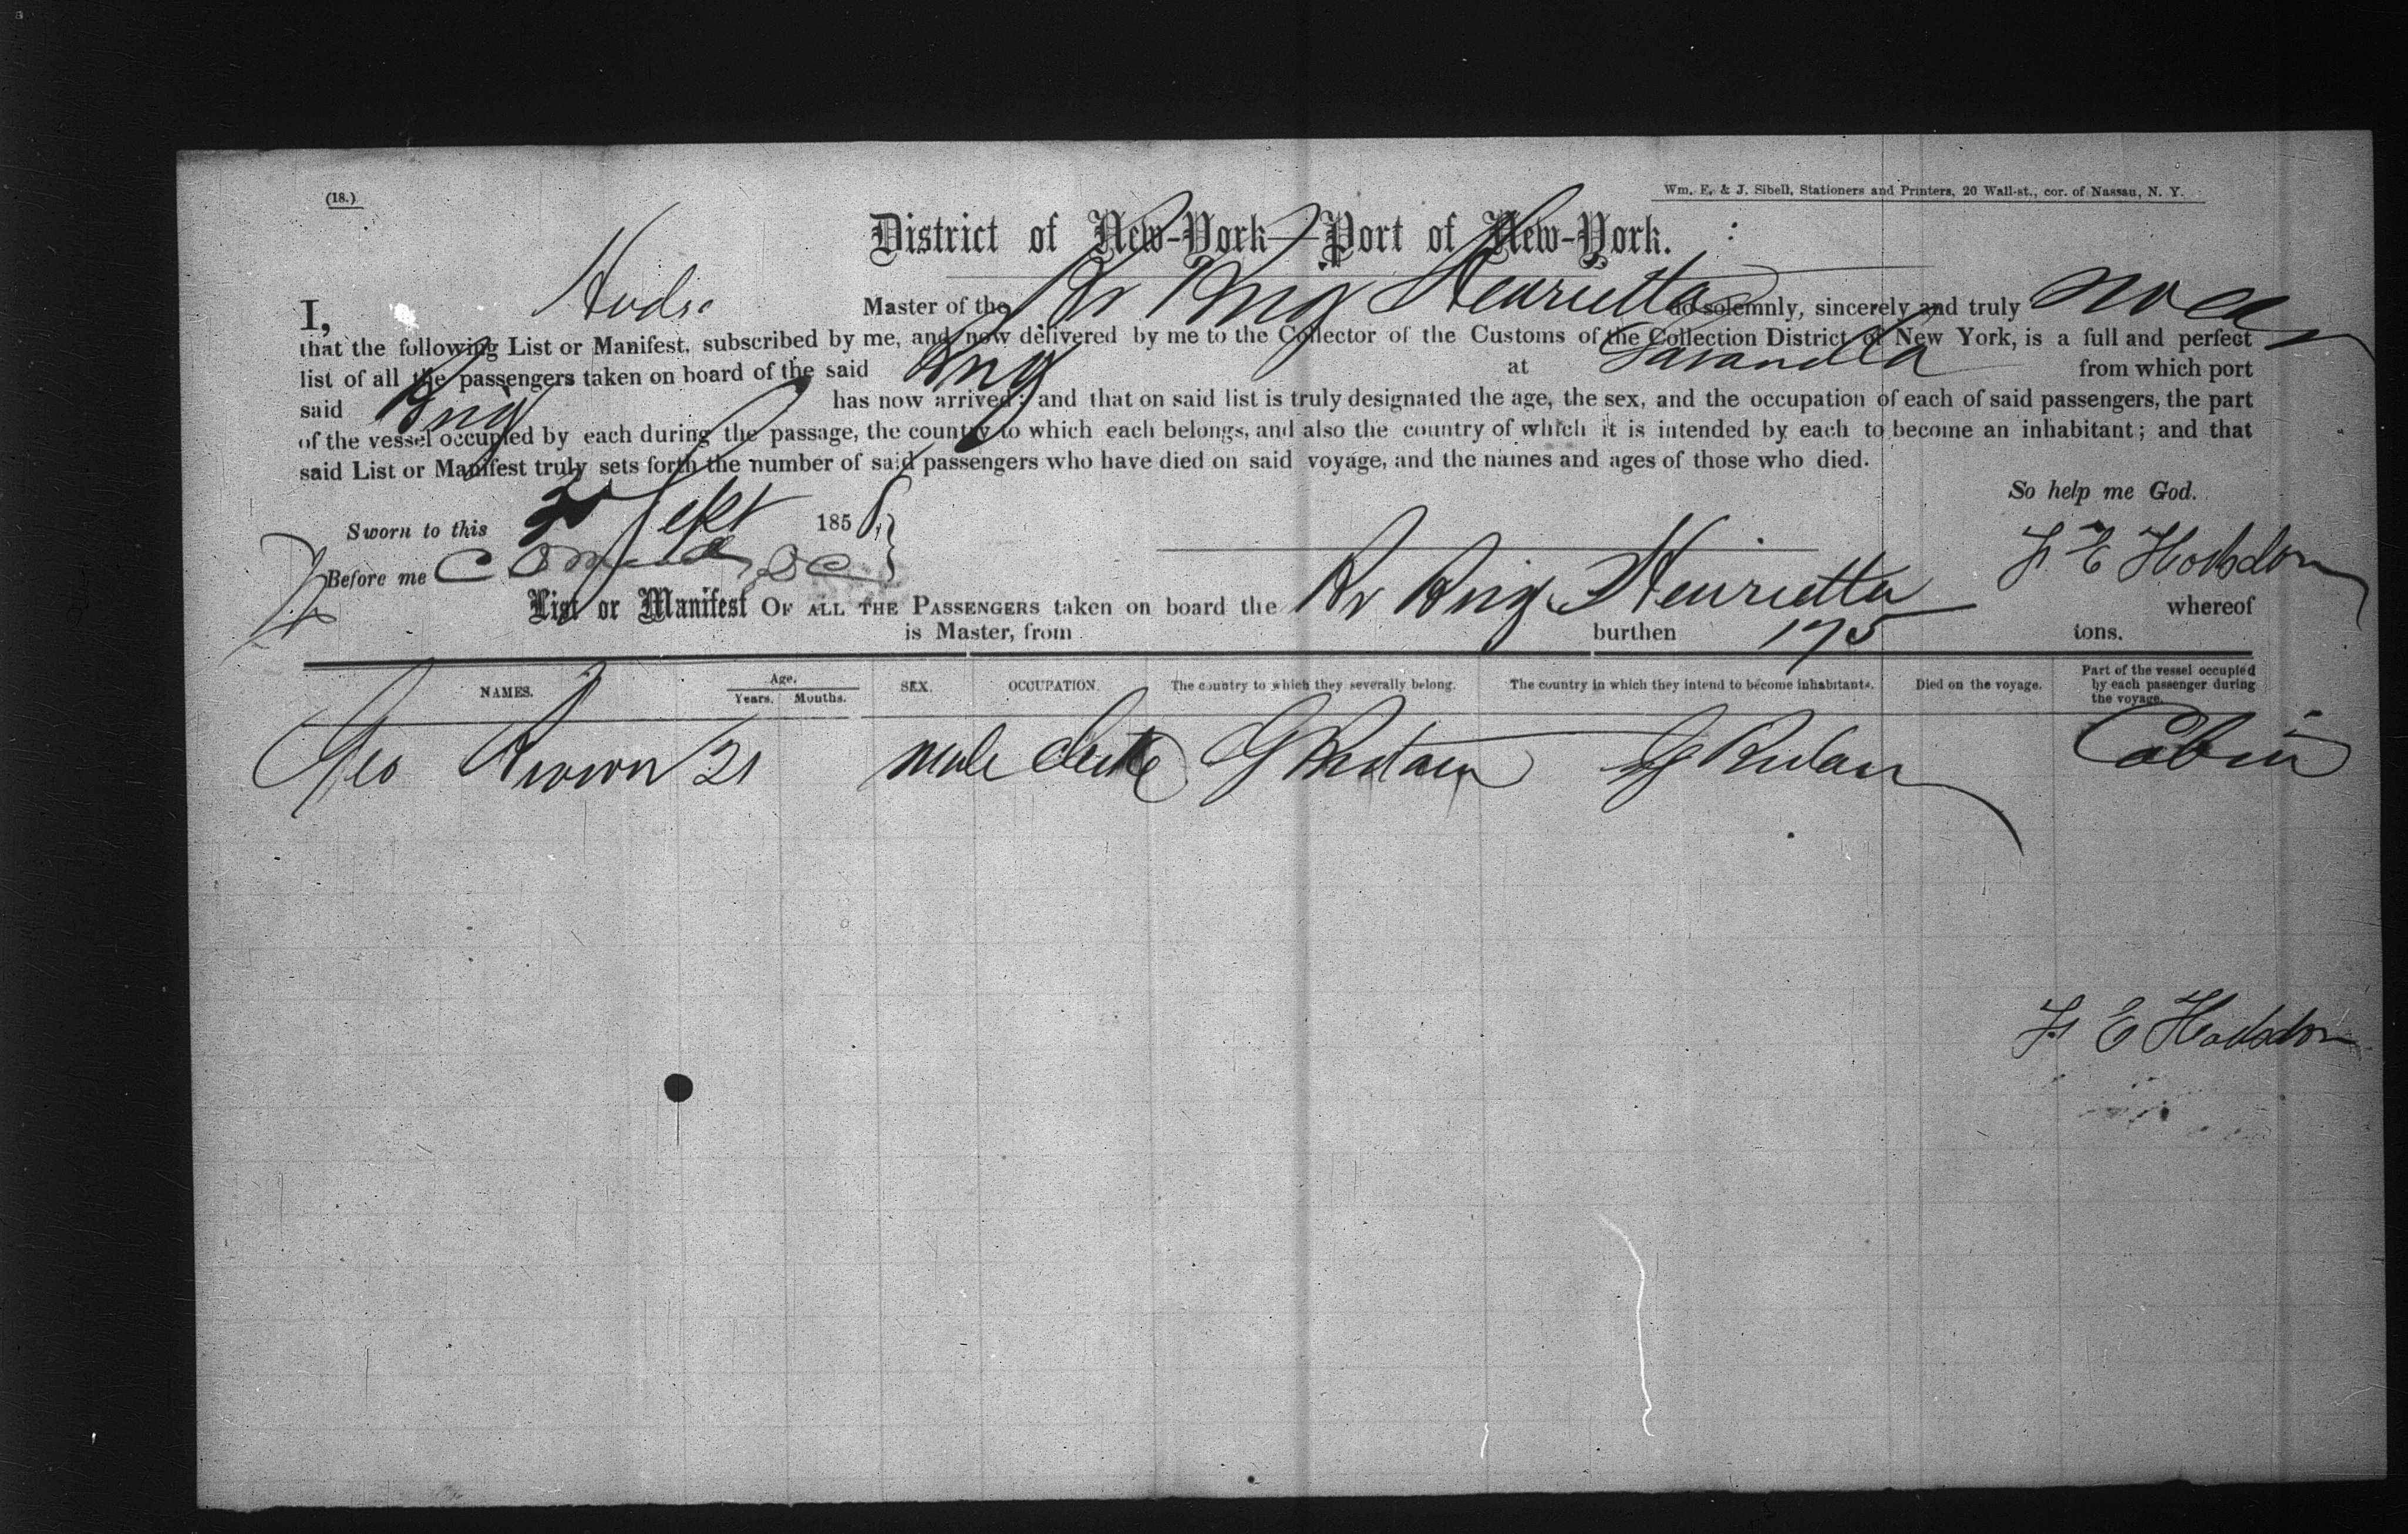 (18.)
Wm. E. & J. Sibell, Stationers and Printers, 20 Wall-st., cor. of Nassau, N. Y.
District of New-York—Port of New-York.
I, Master of the Br Brig Henrietta do solemnly, sincerely and truly swear
that the following List or Manifest, subscribed by me, and now delivered by me to the Collector of the Customs of the Collection District of New York, is a full and perfect
list of all the passengers taken on board of the said Brig at Savanilla from which port
said Brig has now arrived; and that on said list is truly designated the age, the sex, and the occupation of each of said passengers, the part
of the vessel occupied by each during the passage, the country to which each belongs, and also the country of which it is intended by each to become an inhabitant; and that
said List or Manifest truly sets forth the number of said passengers who have died on said voyage, and the names and ages of those who died.
So help me God.
Sworn to this Sept 185
F E Hobsdon
Before me
List or Manifest OF ALL THE PASSENGERS taken on board the Br Brig Henrietta whereof
is Master, from burthen 175 tons.
NAMES. Age. Years. Months. SEX. OCCUPATION. The country to which they severally belong. The country in which they intend to become inhabitants. Died on the voyage. Part of the vessel occupied by each passenger during the voyage.
Geo Brown 21 male Clerk G Britain G Britain Cabin
F E Hobsdon